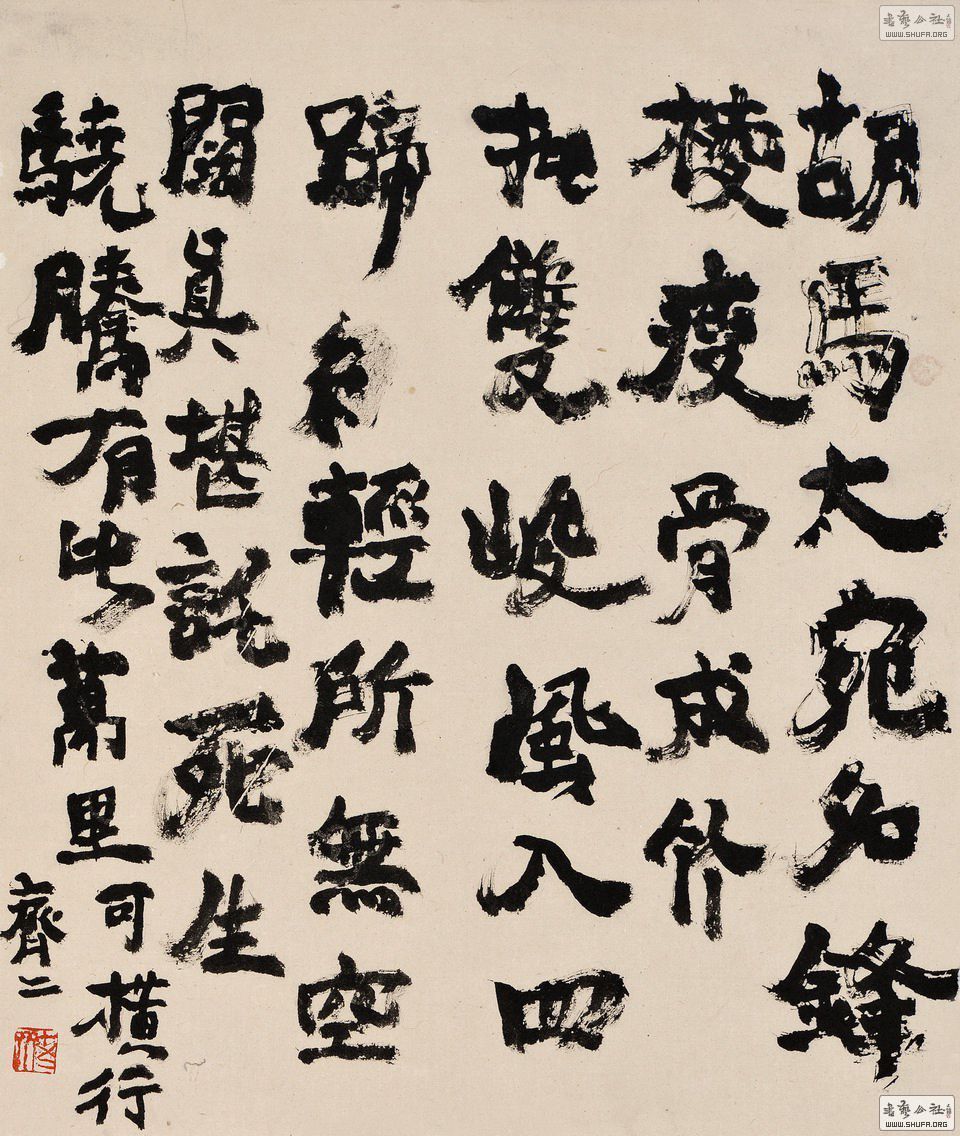 胡馬太宛名鋒
棱瘦骨成竹
批雙峻風入四
蹄輕所無空
闊真堪託死生
驍騰有此萬里可橫行
齊二
书藝公社
WWW.SHUFA.ORG
书藝公社
WWW.SHUFA.ORG